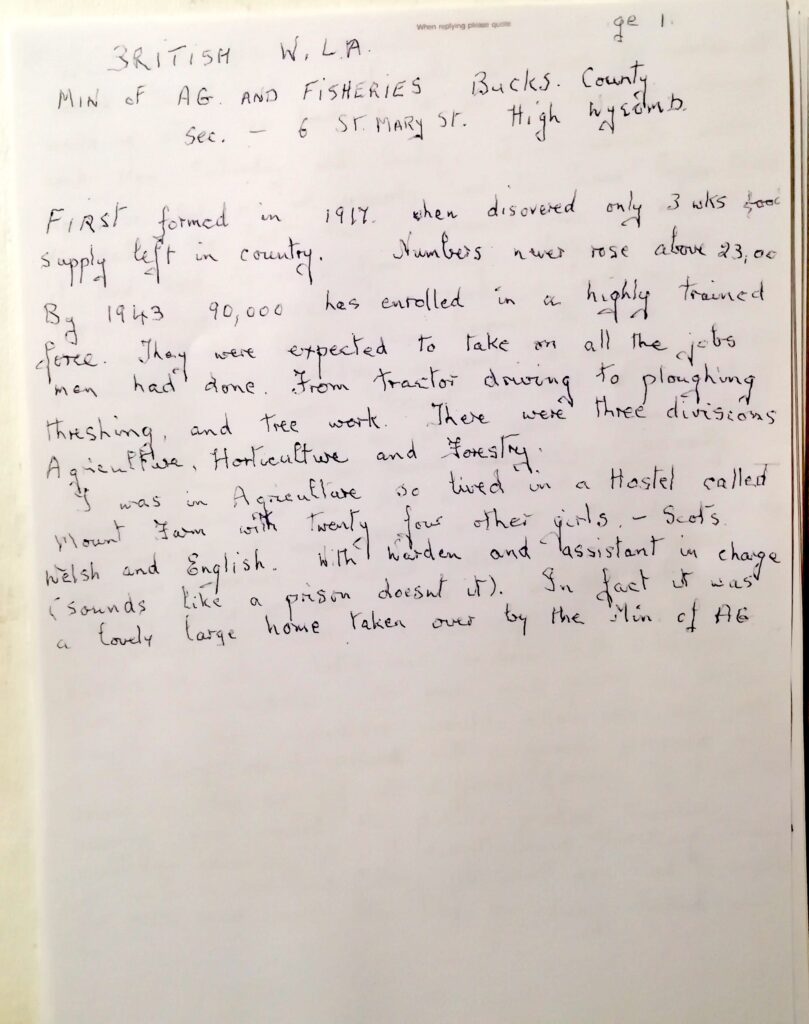 When replying please quote
ge 1.
BRITISH W.L.A.
MIN of AG. AND FISHERIES Bucks. County.
Sec. - 6 ST. MARY ST. High Wycomb.
FIRST formed in 1917. when disovered only 3 wks food
supply left in country. Numbers never rose above 23,00
By 1943 90,000 has enrolled in a highly trained
force. They were expected to take on all the jobs
men had done. From tractor driving to ploughing
threshing, and tree work. There were three divisions
Agriculture, Horticulture and Forestry.
I was in Agriculture so lived in a Hostel called
Mount Farm with twenty four other girls. - Scots.
Welsh and English. With Warden and assistant in charge
(sounds like a prison doesnt it). In fact it was
a lovely large home taken over by the Min of AG